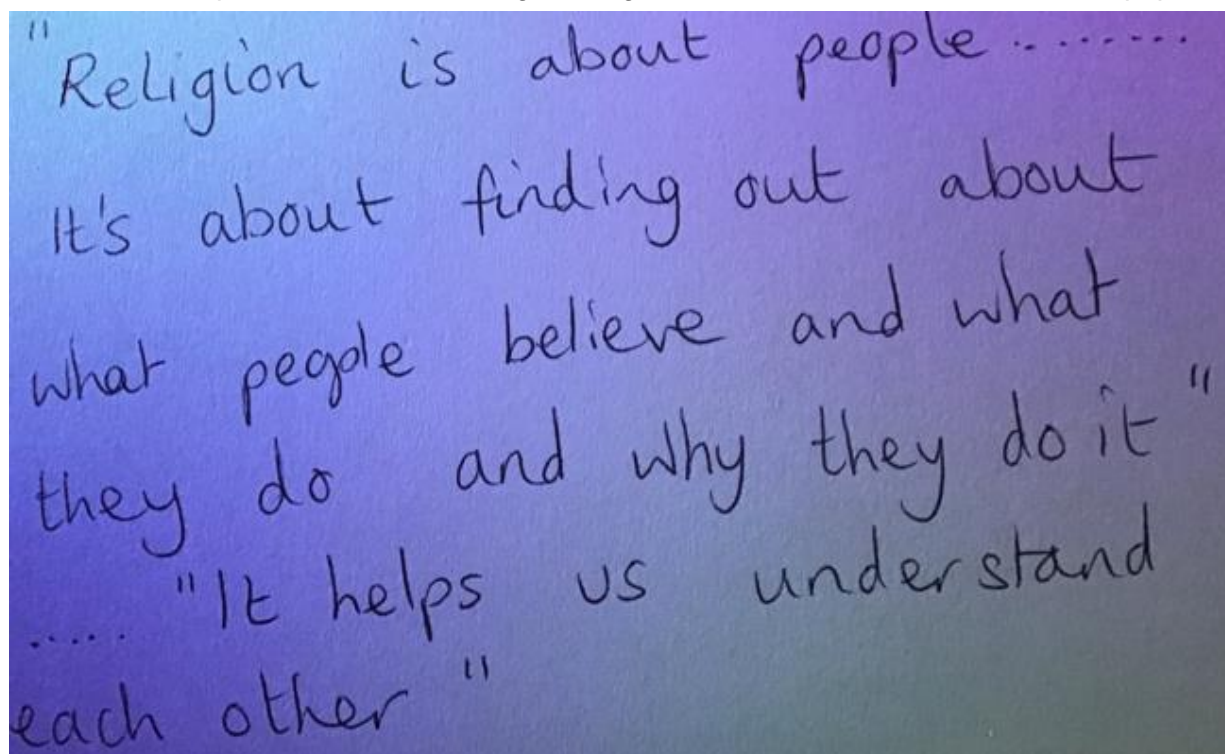 "Religion is about people ........
It's about finding out about
what people believe and what
they do and why they do it"
..... "It helps us understand
each other"